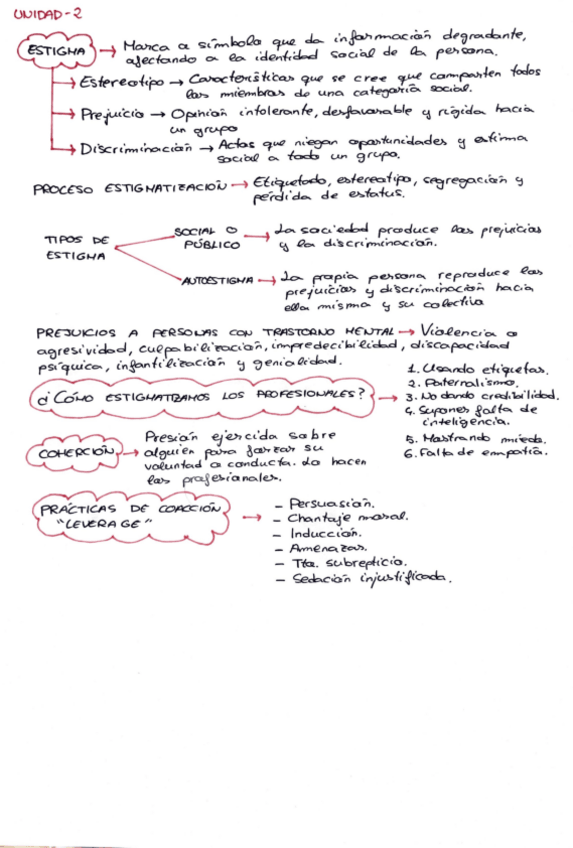 UNIDAD-2
ESTIGMA → Marca o símbolo que da información degradante,
afectando a la identidad social de la persona.
→ Estereotipo → Características que se cree que comparten todos
los miembros de una categoría social.
→ Prejuicio → Opinión intolerante, desfavorable y rígida hacia
un grupo
→ Discriminación → Actos que niegan oportunidades y estima
social a todo un grupo.
PROCESO ESTIGMATIZACIÓN → Etiquetado, estereotipo, segregación y
pérdida de estatus.
TIPOS DE
ESTIGMA
SOCIAL O
PÚBLICO → La sociedad produce los prejuicios
y la discriminación.
AUTOESTIGMA → La propia persona reproduce los
prejuicios y discriminación hacia
ella misma y su colectivo
PREJUICIOS A PERSONAS CON TRASTORNO MENTAL → Violencia o
agresividad, culpabilización, impredecibilidad, discapacidad
psíquica, infantilización y genialidad.
¿CÓMO ESTIGMATIZAMOS LOS PROFESIONALES? →
1. Usando etiquetas.
2. Paternalismo.
3. No dando credibilidad.
4. Supones falta de
inteligencia.
5. Mostrando miedo.
6. Falta de empatía.
COHERCIÓN → Presión ejercida sobre
alguien para forzar su
voluntad o conducta. Lo hacen
los profesionales.
PRÁCTICAS DE COACCIÓN
"LEVERAGE" →
- Persuasión.
- Chantaje moral.
- Inducción.
- Amenazas.
- Tto. subrepticio.
- Sedación injustificada.